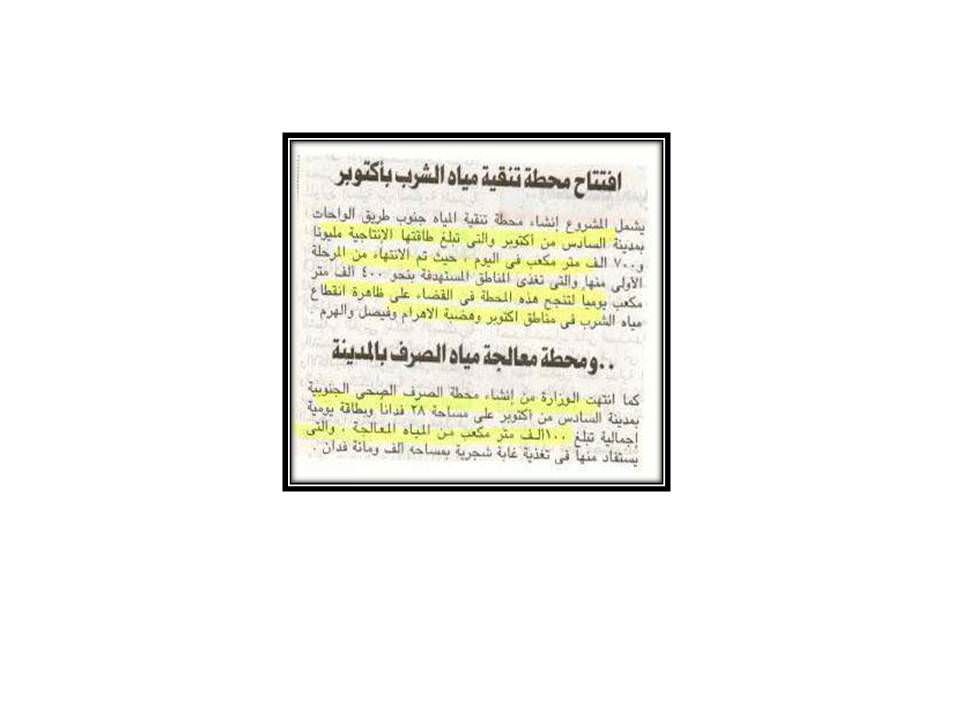 افتتاح محطة تنقية مياه الشرب بأكتوبر
يشمل المشروع إنشاء محطة تنقية المياه جنوب طريق الواحات
بمدينة السادس من اكتوبر والتى تبلغ طاقتها الإنتاجية مليونا
و٧٠٠ الف متر مكعب فى اليوم ، حيث تم الانتهاء من المرحلة
الأولى منها والتى تغذى المناطق المستهدفة بنحو ٤٠٠ الف متر
مكعب يوميا لتنجح هذه المحطة فى القضاء على ظاهرة انقطاع
مياه الشرب فى مناطق اكتوبر وهضبة الاهرام وفيصل والهرم .
..ومحطة معالجة مياه الصرف بالمدينة
كما انتهت الوزارة من إنشاء محطة الصرف الصحى الجنوبية
بمدينة السادس من اكتوبر على مساحة ٢٨ فدانا وبطاقة يومية
إجمالية تبلغ ١٠٠الف متر مكعب من المياه المعالجة ، والتى
يستفاد منها فى تغذية غابة شجرية بمساحه الف ومائة فدان .